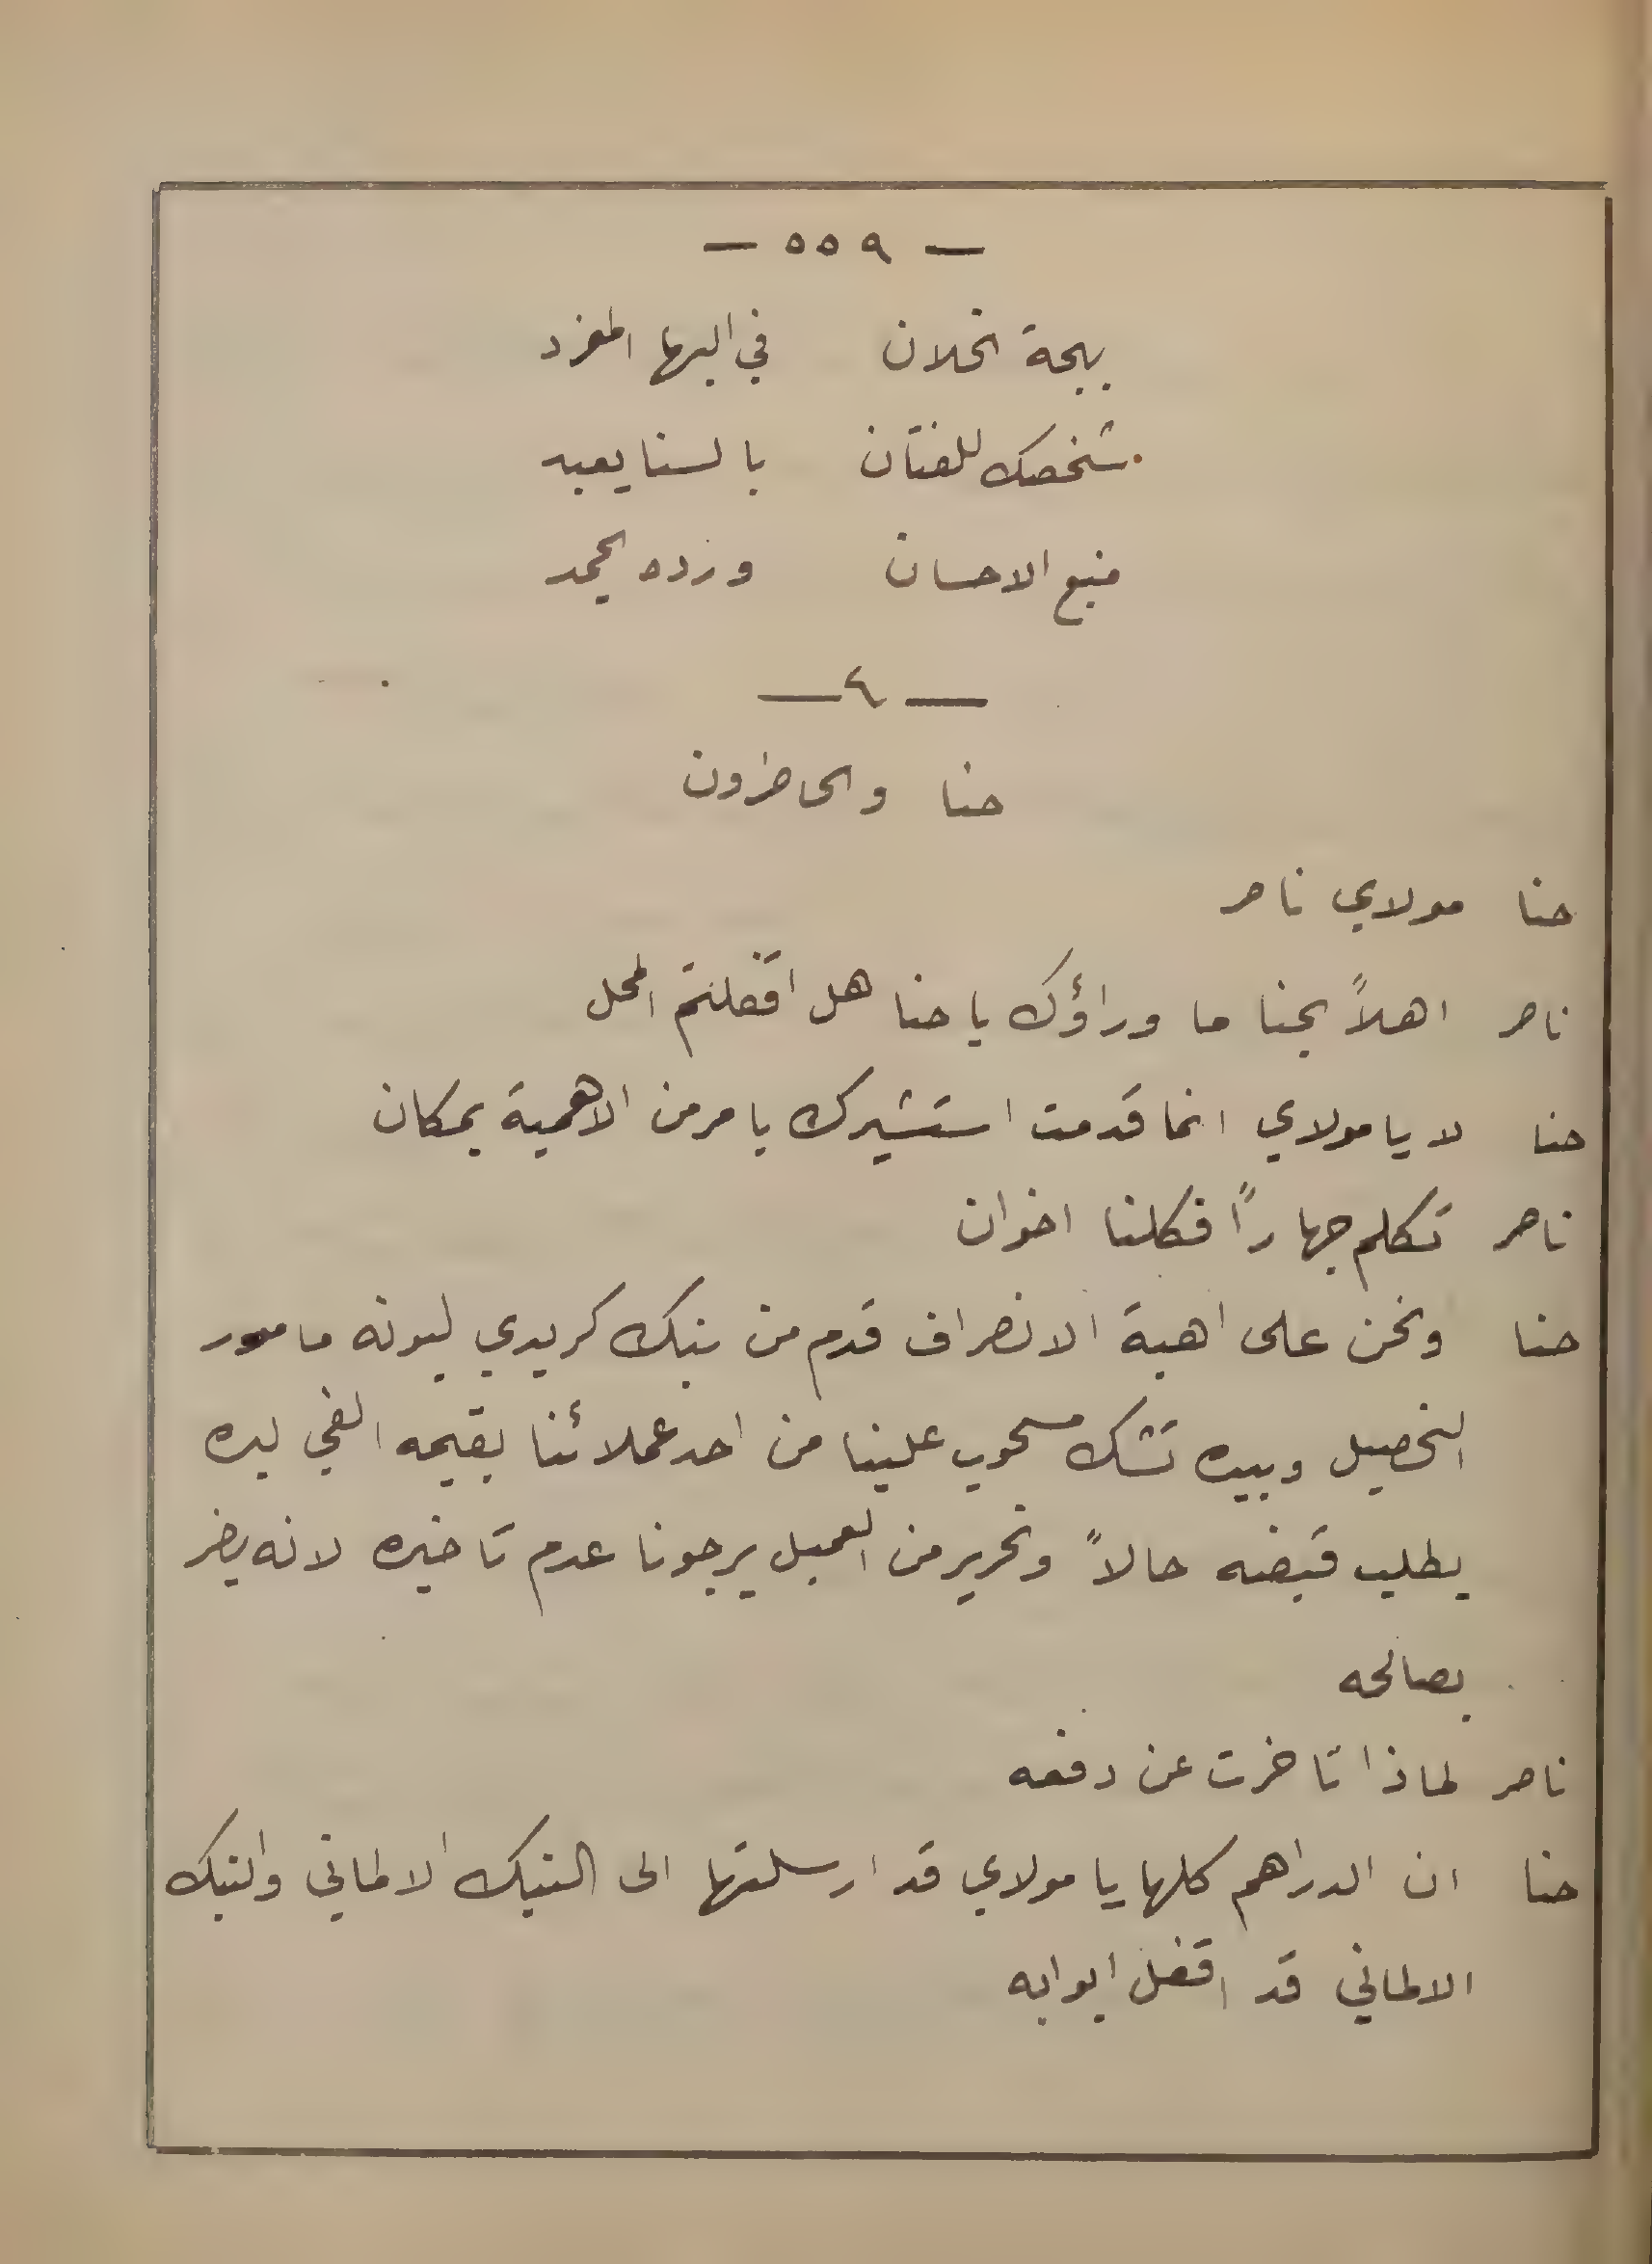 — ٥٥٩ —
بهجة الخلان في البها المفرد
شخصك للفتان بالسنا يعبد
منبع الاحسان ورده يحمد
— ٤ —
حنا والحاضرون
حنا مولاي ناصر
ناصر اهلاً بحنا ما وراؤك يا حنا هل اقفلتم المحل
حنا لا يا مولاي انما قدمت استشيرك بامر من الاهمية بمكان
ناصر تكلم جهاراً فكلنا اخوان
حنا ونحن على اهبة الانصراف قدم من بنك كريدي ليونه مامور
التحصيل وبيده تشك مسحوب علينا من احد عملائنا بقيمه الفي ليره
يطلب قبضه حالاً وتحرير من العميل يرجونا عدم تاخيره لانه يضر
بصالحه
ناصر لماذا تاخرت عن دفعه
حنا ان الدراهم كلها يا مولاي قد ارسلتها الى البنك الالماني والبنك
الالماني قد اقفل ابوابه